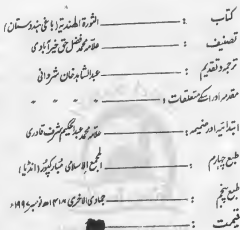 کتاب : الثورة الهندية (باغی ہندوستان)
تصنیف : علامہ محمد فضل حق خیرآبادی
ترجمہ و تقدیم : عبدالشاہد خان شروانی
مقدمہ اور اسکے متعلقات : " " "
ابتدائیہ اور ضمیمہ : علامہ محمد عبدالحکیم شرف قادری
طبع چہارم : المجمع الاسلامی مبارکپور (انڈیا)
طبع پنجم : جمادی الاخری ۱۴۱۸ھ نومبر ۱۹۹۷ء
قیمت :